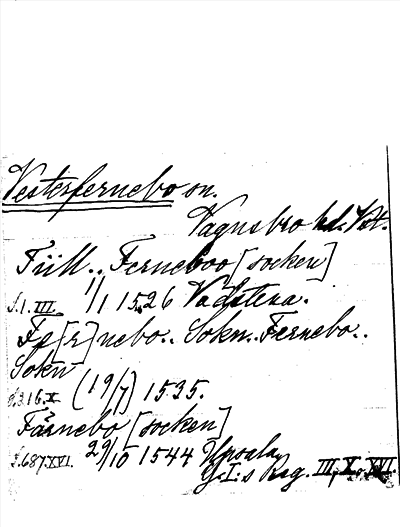 Vesterfernebo sn.
Vagnsbro hd. Vstl.
Till.. Ferneboo [socken]
s.1. III. 1/1 1526 Vadstena.
Fe[r]nebo.. Sokn. Fernebo..
Sokn
s.216.X. (19/7) 1535.
Färnebo [socken]
s.687.XVI. 29/10 1544 Upsala
G. I:s Reg. III, X, XVI.